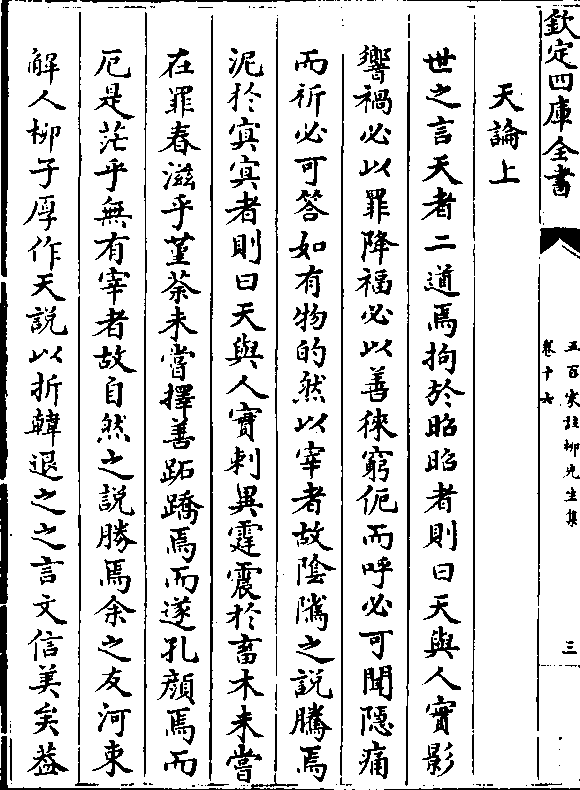 欽定四庫全書
五百家註柳先生集
卷十七
三
天論上
世之言天者二道焉拘於昭昭者則曰天與人實影
響禍必以罪降福必以善徠窮伌而呼必可聞隱痛
而祈必可答如有物的然以宰者故陰隲之說騰焉
泥於㝠㝠者則曰天與人實刺異霆震於畜木未嘗
在罪春滋乎堇荼未嘗擇善跖蹻焉而遂孔顔焉而
厄是茫乎無有宰者故自然之說勝焉余之友河東
解人栁子厚作天說以折韓退之之言文信美矣葢